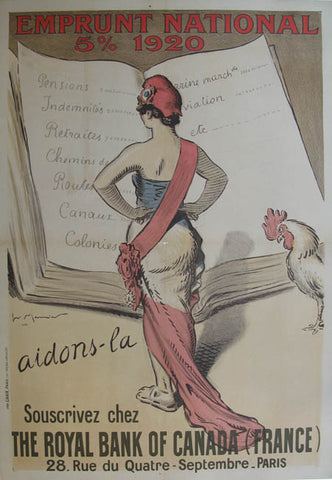 EMPRUNT NATIONAL
5% 1920
Pensions
Indemnités
Retraites
Chemins de
Routes
Canaux
Colonies
marine march^de
viation
etc
aidons-la
Souscrivez chez
THE ROYAL BANK OF CANADA (FRANCE)
28. Rue du Quatre-Septembre_PARIS